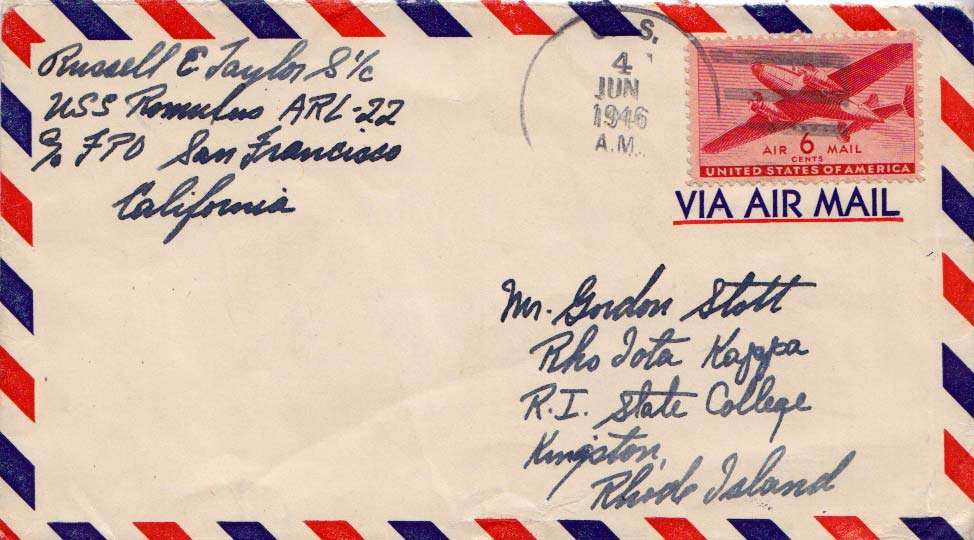 Russell E Taylor S 1/c
USS Romulus ARL-22
c/o FPO San Francisco
California
U. S.
4
JUN
1946
A.M.
AIR 6 MAIL
CENTS
UNITED STATES OF AMERICA
VIA AIR MAIL
Mr. Gordon Stott
Rho Iota Kappa
R.I. State College
Kingston,
Rhode Island